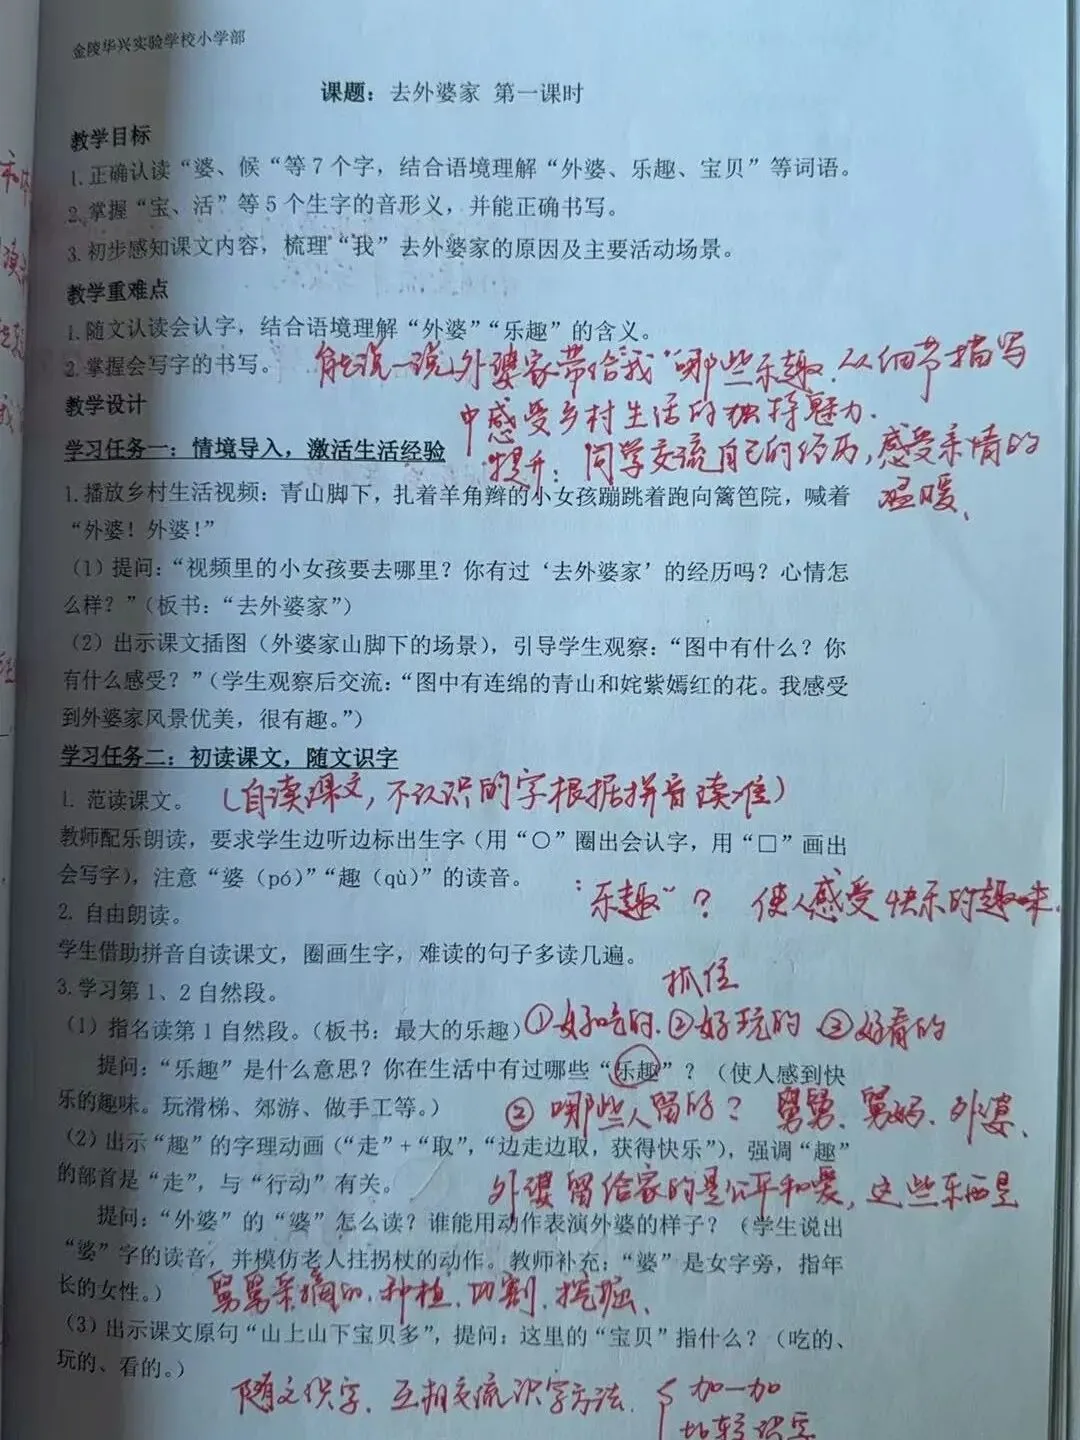 金陵华兴实验学校小学部
课题：去外婆家 第一课时
教学目标
1.正确认读“婆、候“等7个字，结合语境理解“外婆、乐趣、宝贝”等词语。
2.掌握“宝、活”等5个生字的音形义，并能正确书写。
3.初步感知课文内容，梳理“我”去外婆家的原因及主要活动场景。
教学重难点
1.随文认读会认字，结合语境理解“外婆”“乐趣”的含义。
2.掌握会写字的书写。
能说一说，外婆家带给我“哪些乐趣，从细节描写
中感受乡村生活的独特魅力.
教学设计
提升：同学交流自己的经历，感受亲情的
温暖、
学习任务一：情境导入，激活生活经验
1.播放乡村生活视频：青山脚下，扎着羊角辫的小女孩蹦跳着跑向篱笆院，喊着
“外婆！外婆！”
（1）提问：“视频里的小女孩要去哪里？你有过‘去外婆家’的经历吗？心情怎
么样？”（板书：“去外婆家”）
（2）出示课文插图（外婆家山脚下的场景），引导学生观察：“图中有什么？你
有什么感受？”（学生观察后交流：“图中有连绵的青山和姹紫嫣红的花。我感受
到外婆家风景优美，很有趣。”）
学习任务二：初读课文，随文识字
1. 范读课文。
（自读课文，不认识的字根据拼音读准）
教师配乐朗读，要求学生边听边标出生字（用“○”圈出会认字，用“□”画出
会写字），注意“婆（pó）”“趣（qù）”的读音。
“乐趣“？ 使人感受快乐的趣味.
2. 自由朗读。
学生借助拼音自读课文，圈画生字，难读的句子多读几遍。
抓住
3.学习第1、2自然段。
（1）指名读第1自然段。（板书：最大的乐趣）
①好吃的.②好玩的 ③好看的
提问：“乐趣”是什么意思？你在生活中有过哪些“乐趣”？（使人感到快
乐的趣味。玩滑梯、郊游、做手工等。）
② 哪些人留的？ 舅舅、舅妈、外婆、
（2）出示“趣”的字理动画（“走”+“取”，“边走边取，获得快乐”），强调“趣”
的部首是“走”，与“行动”有关。
外婆留给家的是公平和爱，这些东西是
提问：“外婆”的“婆”怎么读？谁能用动作表演外婆的样子？（学生说出
“婆”字的读音，并模仿老人拄拐杖的动作。教师补充：“婆”是女字旁，指年
长的女性。）
舅舅亲摘的、种植、切割、挖掘、
（3）出示课文原句“山上山下宝贝多”，提问：这里的“宝贝”指什么？（吃的、
玩的、看的。）
随文识字、互相交流识字方法.
加一加
比较识字